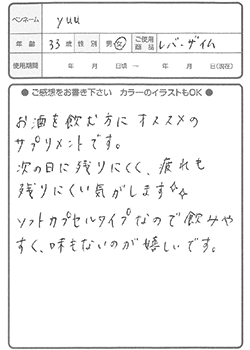 ペンネーム yuu
年齢 33歳 性別 男・女 ご使用商品 レバーザイム
使用期間 年 月 日頃 ー 年 月 日(現在)
● ご感想をお書き下さい カラーのイラストもOK ●
お酒を飲む方にオススメの
サプリメントです。
次の日に残りにくく、疲れも
残りにくい気がします☆☆
ソフトカプセルタイプなので飲みや
すく、味もないのが嬉しいです。